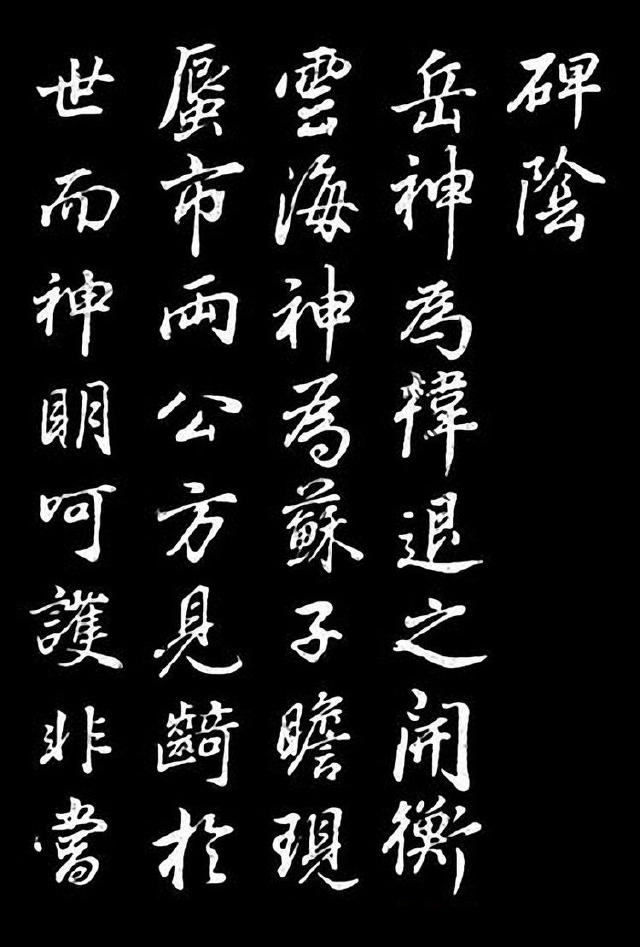 碑陰
岳神為韓退之開衡
雲海神為蘇子瞻現
蜃市両公方見齮於
世而神明呵護非當